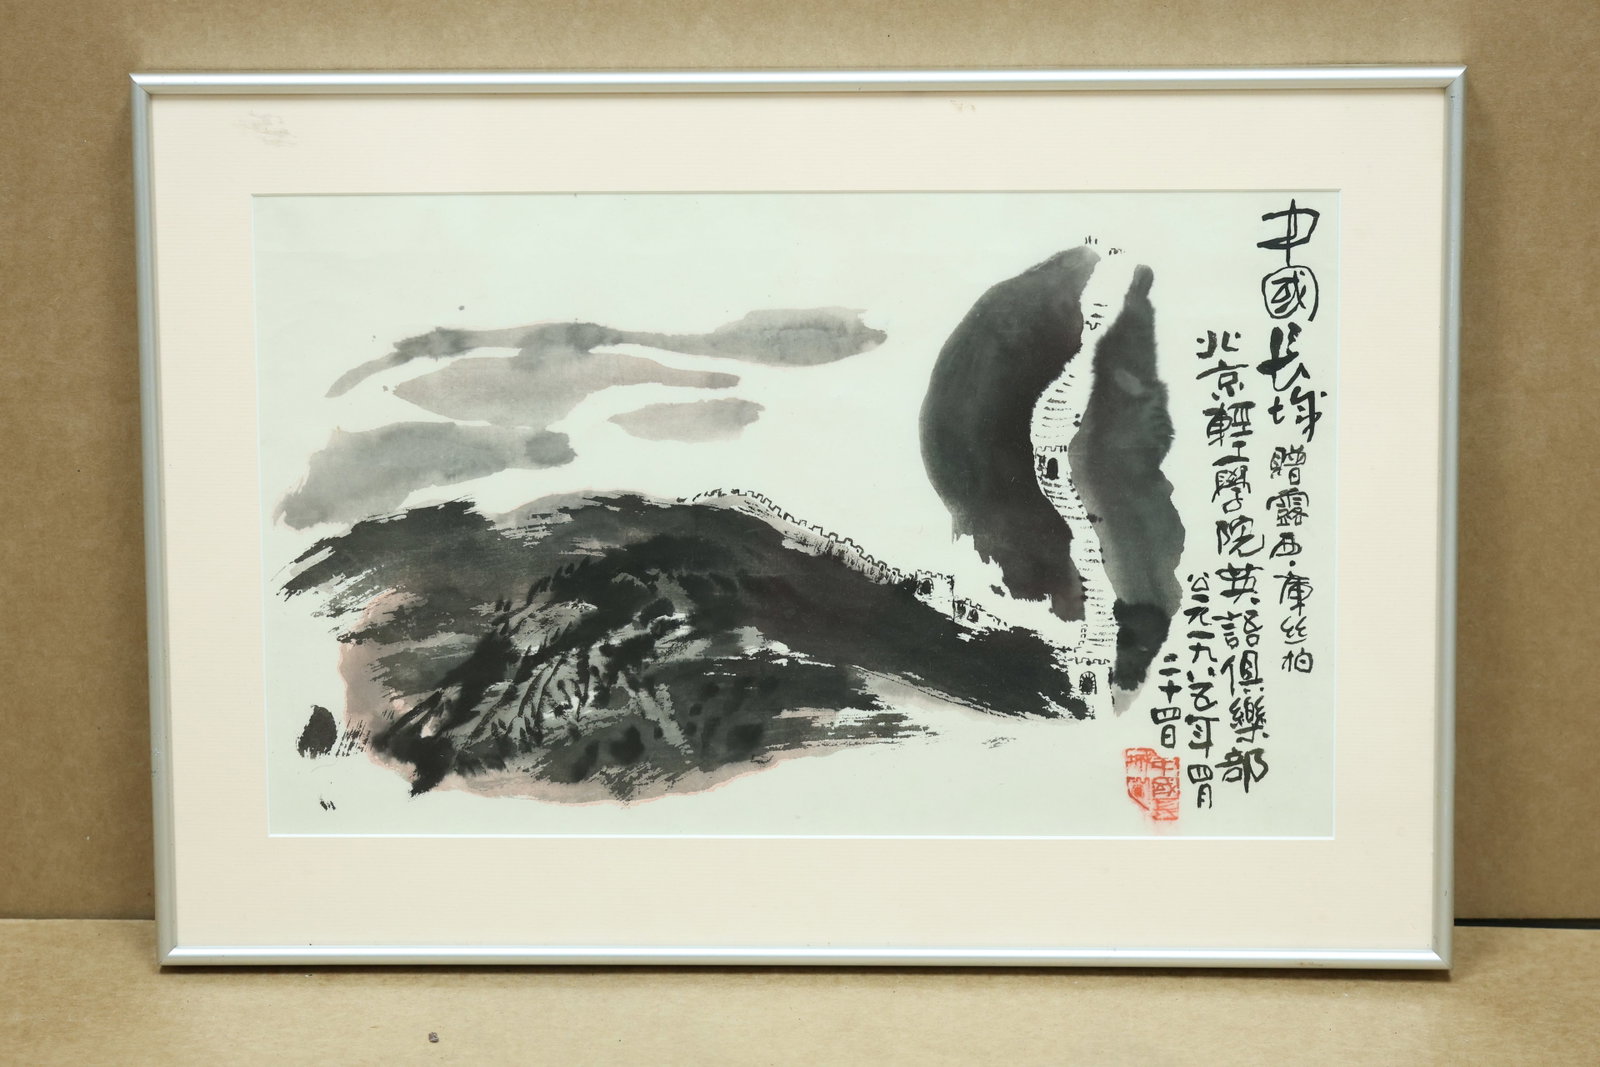 中國長城 贈露西·庫丝柏
北京輕工學院英語俱樂部
公元一九八五年四月
二十四日
中國長